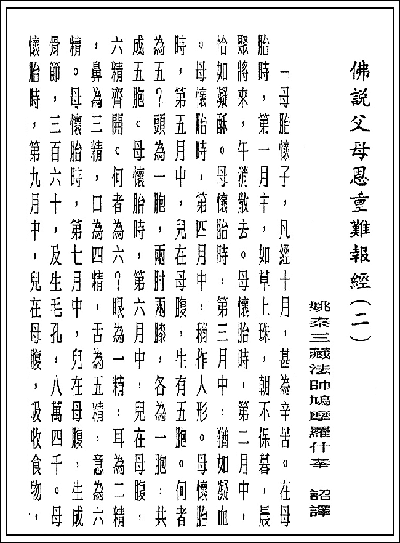 佛説父母恩重難報經(二)
姚秦三藏法師鳩摩羅什奉 詔譯
一母胎懷子,凡經十月,甚為辛苦。在母
胎時,第一月中,如草上珠,朝不保暮,晨
聚將來,午消散去。母懷胎時,第二月中,
恰如凝酥。母懷胎時,第三月中,猶如凝血
。母懷胎時,第四月中,稍作人形。母懷胎
時,第五月中,兒在母腹,生有五胞。何者
為五?頭為一胞,兩肘兩膝,各為一胞,共
成五胞。母懷胎時,第六月中,兒在母腹,
六精齊開。何者為六?眼為一精,耳為二精
,鼻為三精,口為四精,舌為五精,意為六
精。母懷胎時,第七月中,兒在母腹,生成
骨節,三百六十,及生毛孔,八萬四千。母
懷胎時,第九月中,兒在母腹,吸收食物,